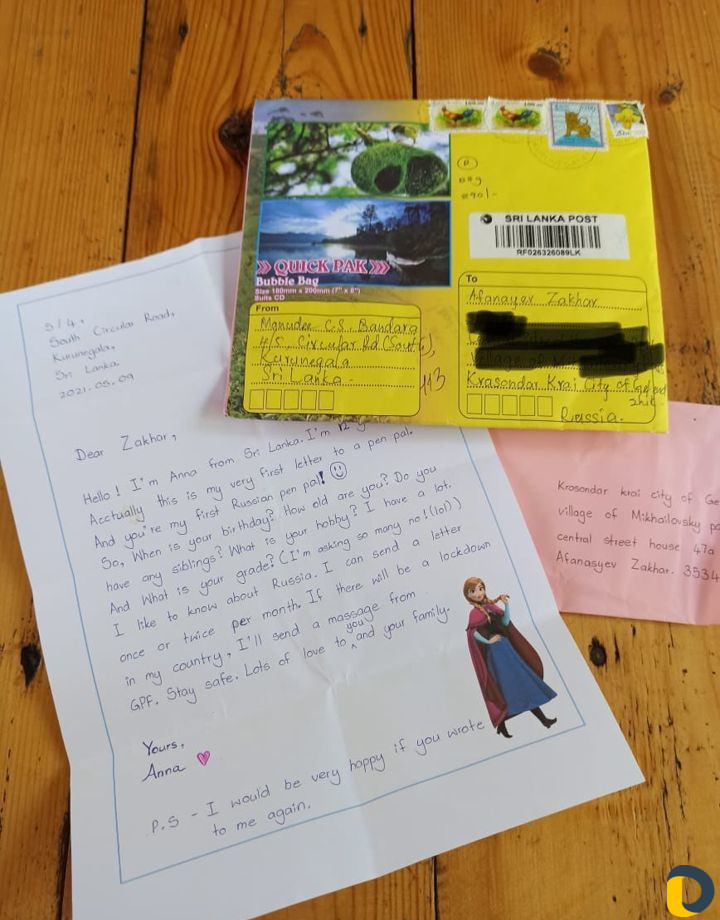 SRI LANKA POST
RF026326089LK
QUICK PAK
Bubble Bag
Size 180mm x 200mm (7" x 8")
Suits CD
From
Manudee C.S. Bandara
4/5 Circular Rd (South),
Kurunegala
Sri Lanka.
To
Afanayev Zakhar
Village of
Krasondar Krai City of
zhik
Russia.
113
South Circular Road,
Kurunegala,
Sri Lanka
2021.05.09
Dear Zakhar,
Hello! I'm Anna from Sri Lanka. I'm 12
Acctually this is my very first letter to a pen pal.
And you're my first Russian pen pal!
So, When is your birthday? How old are you? Do you
have any siblings? What is your hobby? I have a lot.
And What is your grade? (I'm asking so many no! (lol))
I like to know about Russia. I can send a letter
once or twice per month. If there will be a lockdown
in my country, I'll send a massage from
GPF. Stay safe. Lots of love to you and your family.
Yours,
Anna
P.S - I would be very happy if you wrote
to me again.
Krosondar krai city of Ge
village of Mikhailovsky pa
central street house 47a
Afanasyev Zakhar. 3534